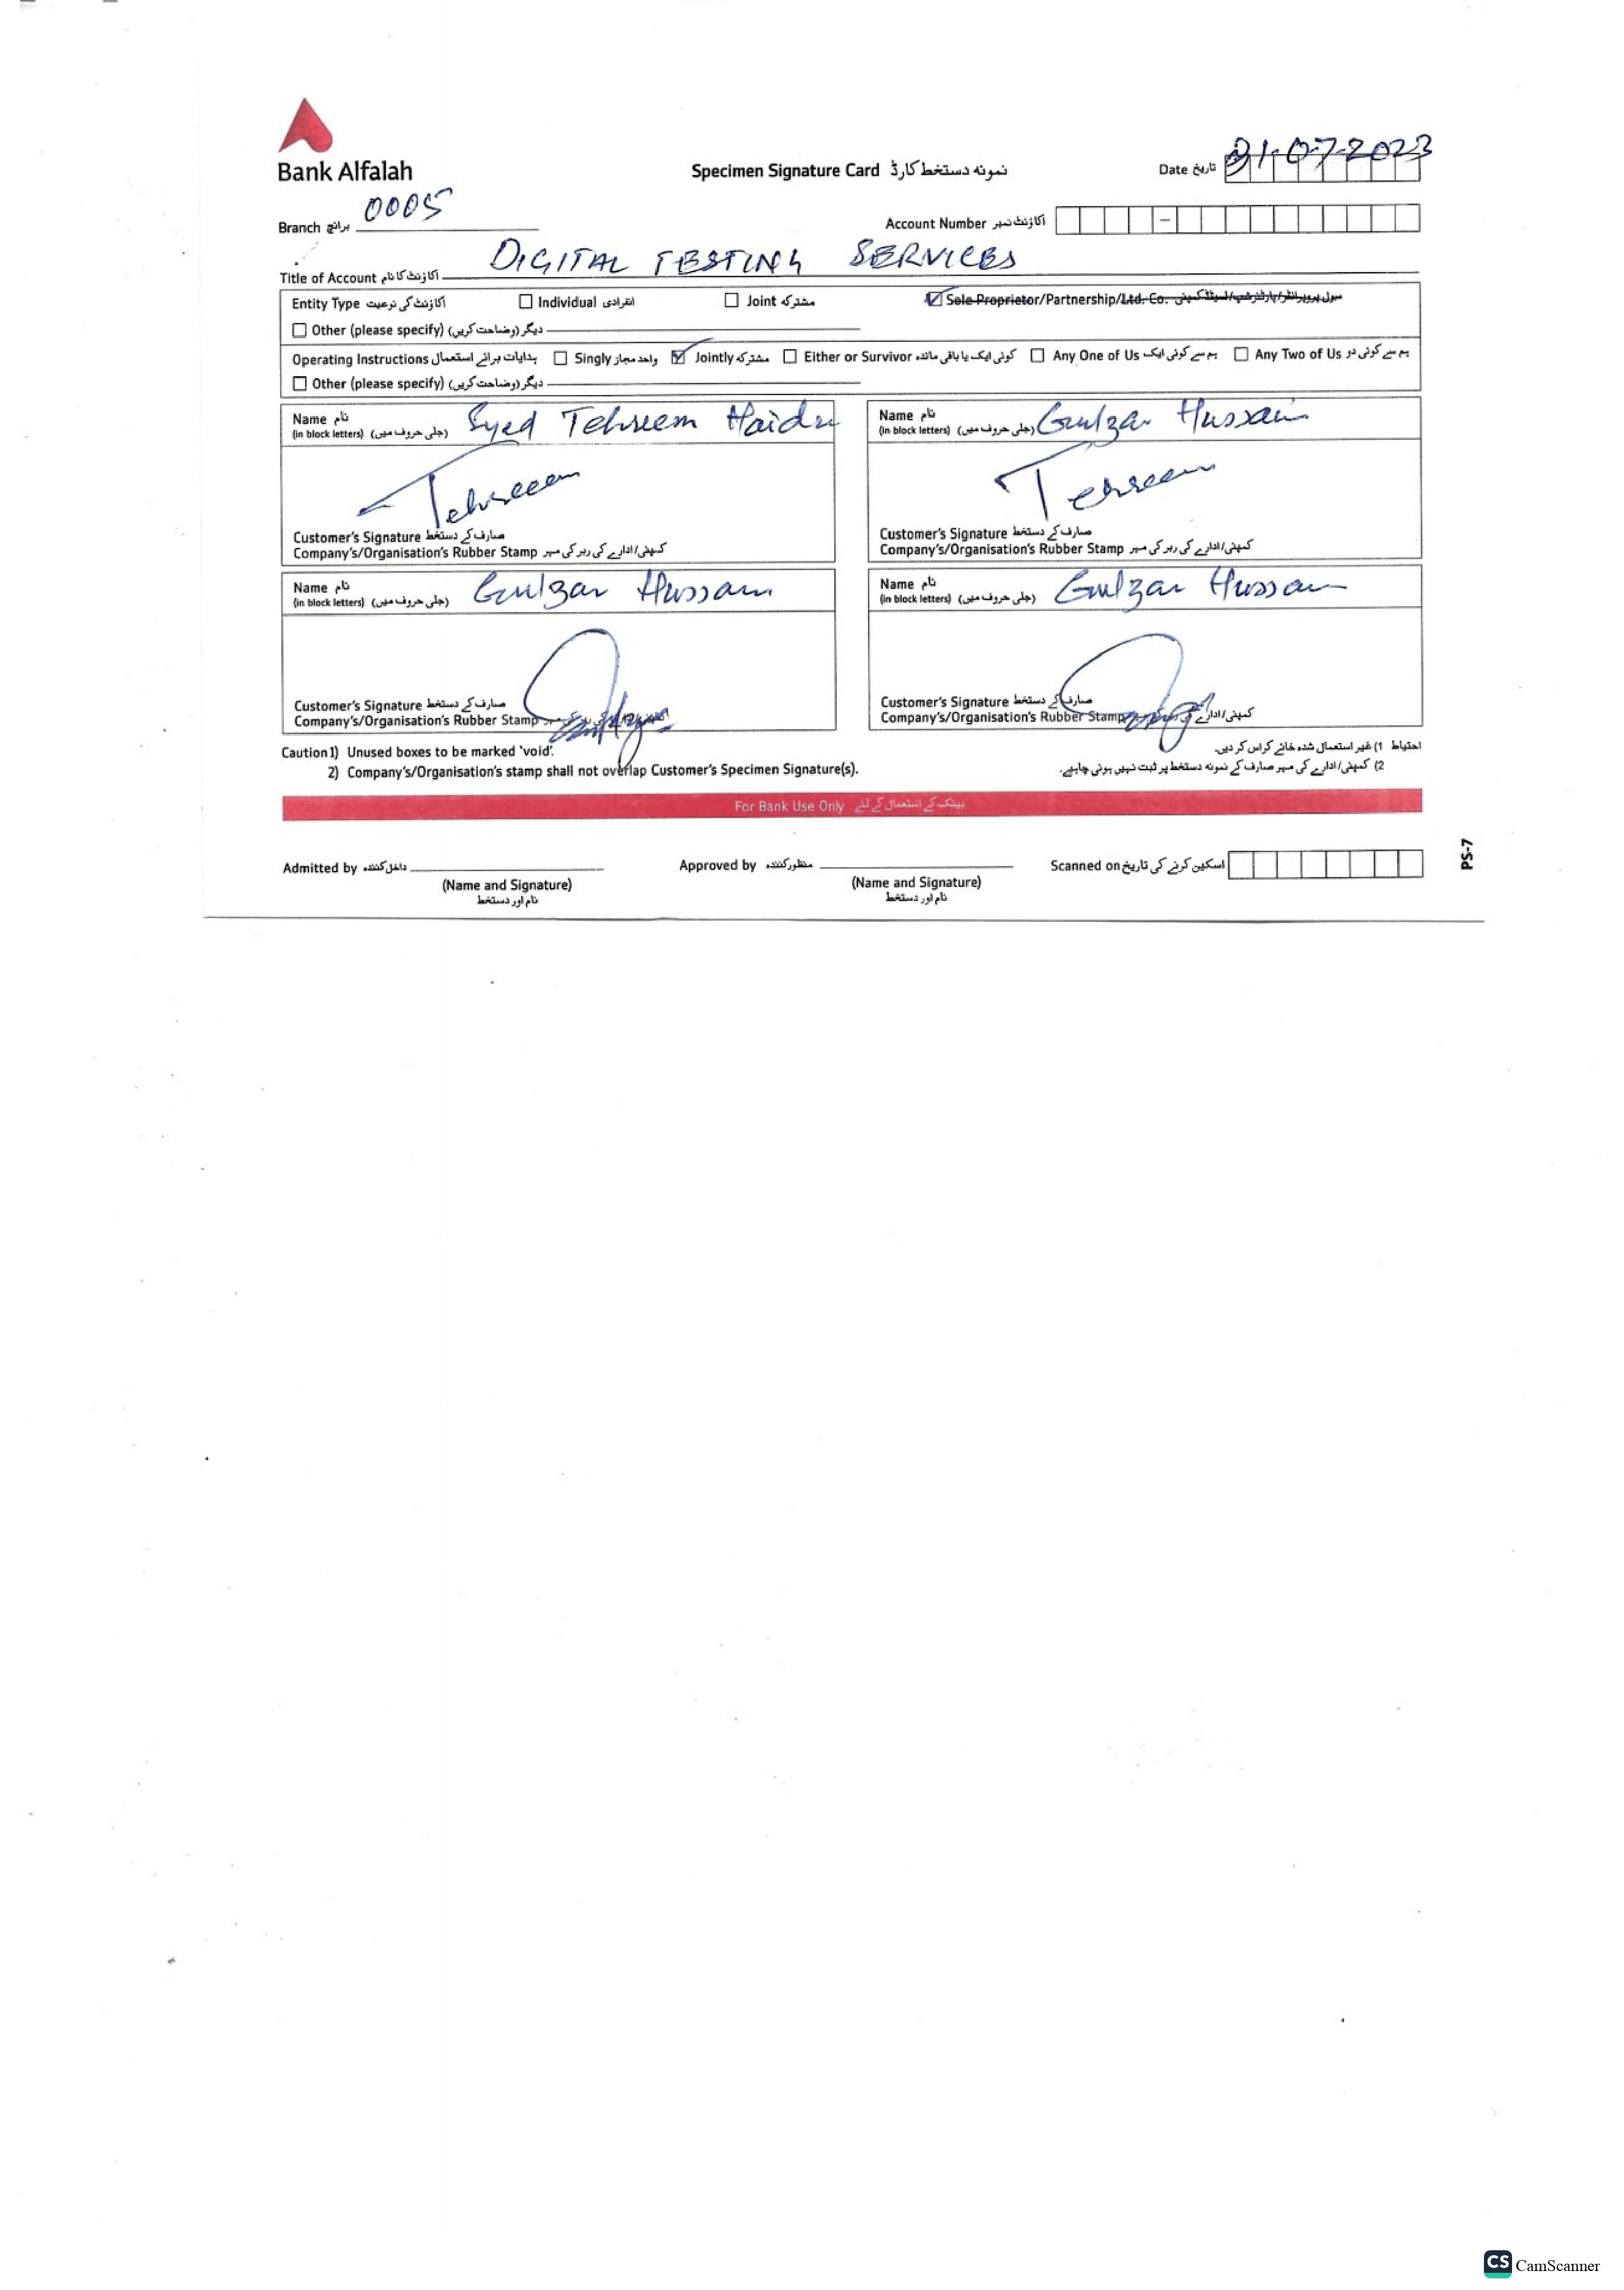 Bank Alfalah
Specimen Signature Card نمونہ دستخط کارڈ
Date تاریخ 31-07-2023
Branch برانچ 0005
Account Number اکاؤنٹ نمبر –
Title of Account اکاؤنٹ کا نام DIGITAL TESTING SERVICES
Entity Type اکاؤنٹ کی نوعیت Individual انفرادی Joint مشترکہ Sole Proprietor/Partnership/Ltd. Co. سول پروپرائٹر/پارٹنرشپ/لمیٹڈ کمپنی
Other (please specify) دیگر (وضاحت کریں)
Operating Instructions ہدایات برائے استعمال Singly واحد مجاز Jointly مشترکہ Either or Survivor کوئی ایک یا باقی ماندہ Any One of Us ہم سے کوئی ایک Any Two of Us ہم سے کوئی دو
Other (please specify) دیگر (وضاحت کریں)
Name نام Syed Tehreem Haider
(in block letters) (جلی حروف میں)
Tehreem
Customer's Signature صارف کے دستخط
Company's/Organisation's Rubber Stamp کمپنی/ادارے کی ربر کی مہر
Name نام Gulzar Hussain
(in block letters) (جلی حروف میں)
Tehreem
Customer's Signature صارف کے دستخط
Company's/Organisation's Rubber Stamp کمپنی/ادارے کی ربر کی مہر
Name نام Gulzar Hussain
(in block letters) (جلی حروف میں)
Customer's Signature صارف کے دستخط
Company's/Organisation's Rubber Stamp
Name نام Gulzar Hussain
(in block letters) (جلی حروف میں)
Customer's Signature صارف کے دستخط
Company's/Organisation's Rubber Stamp کمپنی/ادارے
Caution 1) Unused boxes to be marked 'void'.
2) Company's/Organisation's stamp shall not overlap Customer's Specimen Signature(s).
احتیاط 1) غیر استعمال شدہ خانے کراس کر دیں.
2) کمپنی/ادارے کی مہر صارف کے نمونہ دستخط پر ثبت نہیں ہونی چاہیے.
For Bank Use Only بینک کے استعمال کے لئے
Admitted by داخل کنندہ
(Name and Signature)
نام اور دستخط
Approved by منظور کنندہ
(Name and Signature)
نام اور دستخط
Scanned on اسکین کرنے کی تاریخ
PS-7
CS CamScanner